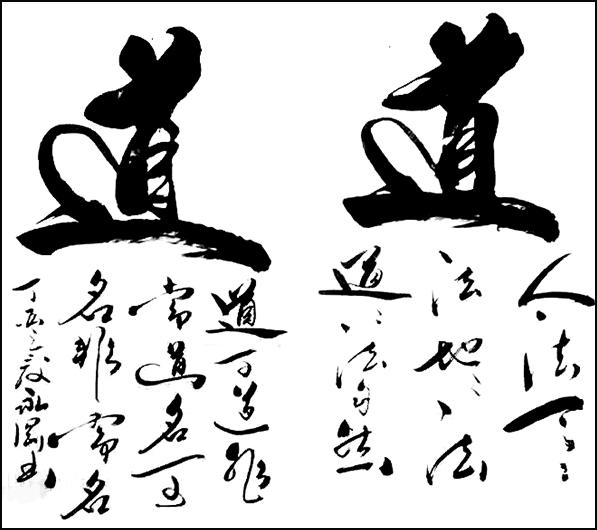 道
人法
法地〻法
道〻法自然
道
道可道非
常道名可
名非常名
丁亥之
永
书